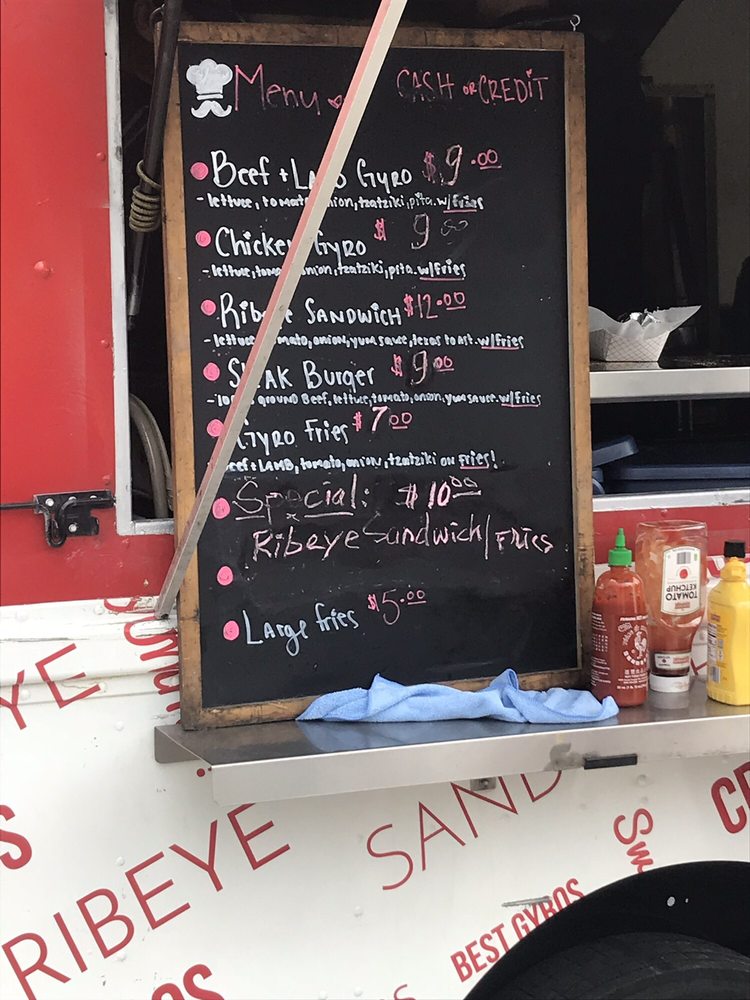 Menu
CASH or CREDIT
Beef + LAMB Gyro $9.00
- lettuce, tomato, onion, tzatziki, pita. w/fries
Chicken Gyro $9.00
- lettuce, tomato, onion, tzatziki, pita. w/fries
Ribeye SANDWICH $12.00
- lettuce, tomato, onion, yum sauce, texas toast. w/fries
STEAK Burger $9.00
- ground Beef, lettuce, tomato, onion, yum sauce. w/fries
Gyro Fries $7.00
Beef + LAMB, tomato, onion, tzatziki on fries!
Special: $10.00
Ribeye Sandwich/Fries
Large fries $5.00
TOMATO
KETCHUP
RIBEYE SAND
BEST GYROS